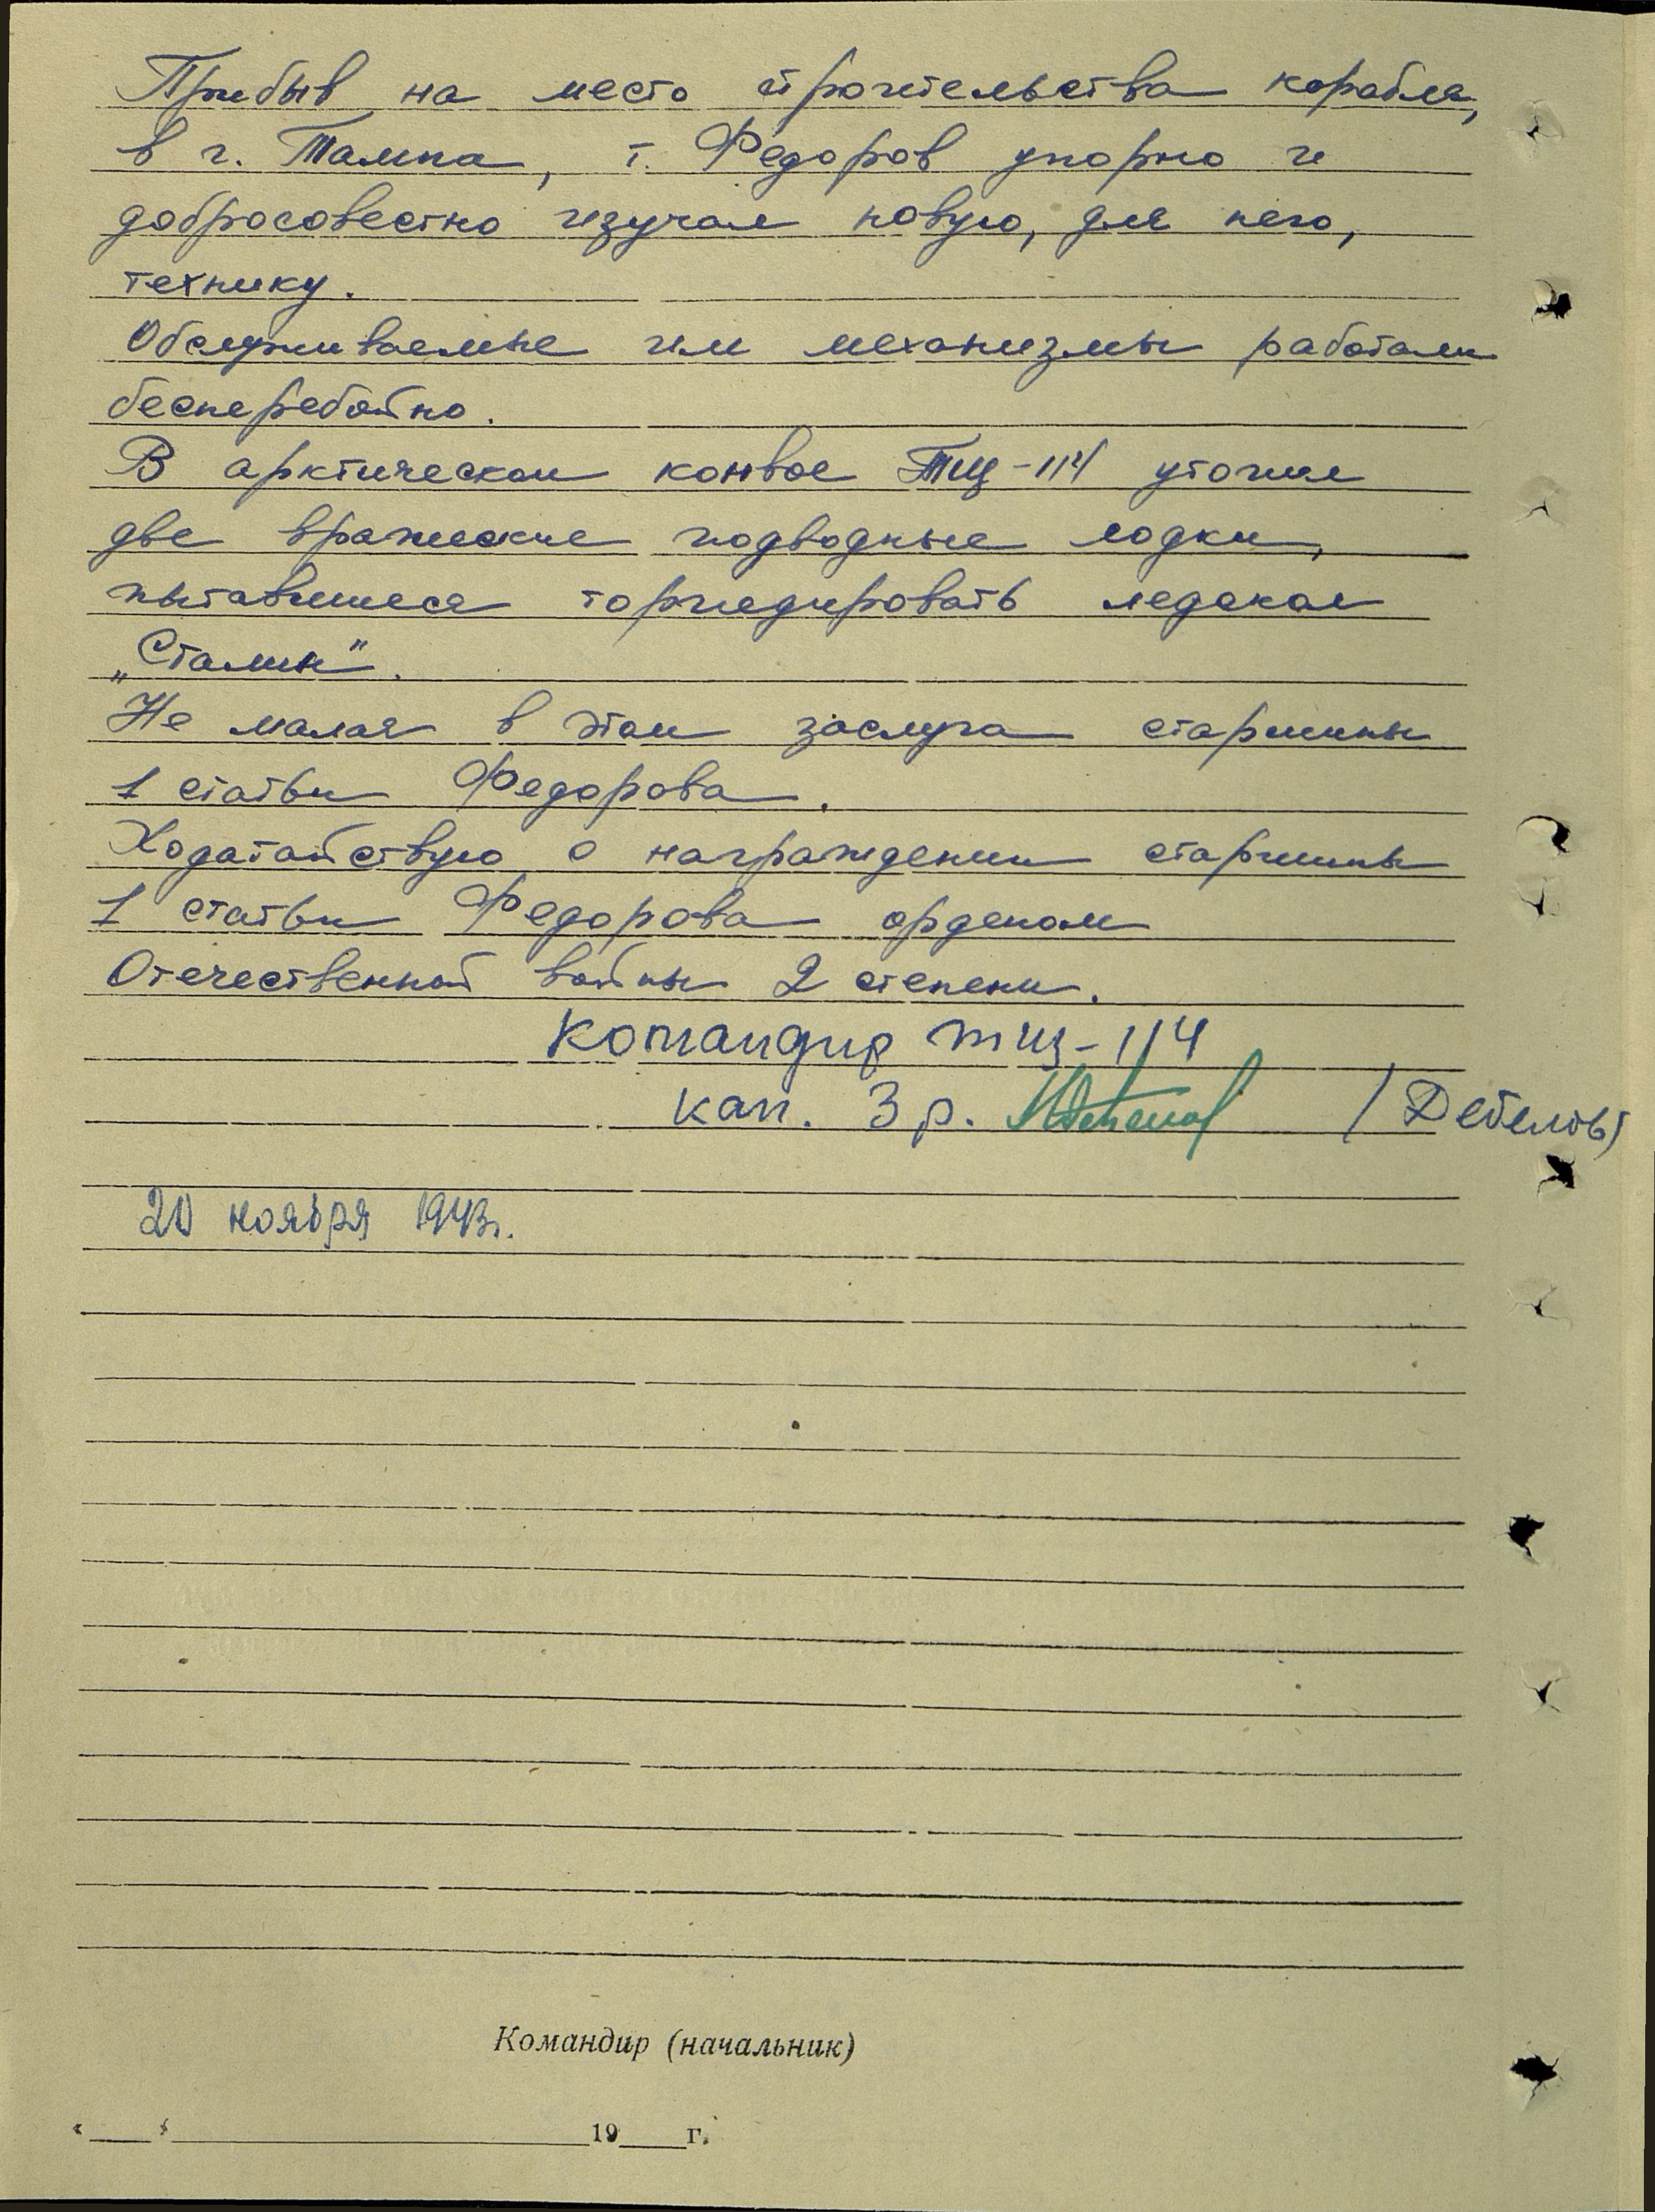 Прибыв на место строительства корабля,
в г. Тампа, т. Федоров упорно и
добросовестно изучал новую, для него,
технику.
Обслуживаемые им механизмы работали
бесперебойно.
В арктическом конвое ТЩ-114 утопил
две вражеские подводные лодки,
пытавшиеся торпедировать ледокол
„Сталин".
Не малая в этом заслуга старшины
1 статьи Федорова.
Ходатайствую о награждении старшины
1 статьи Федорова орденом
Отечественной войны 2 степени.
Командир тщ-114
кап. 3 р. /Дебелов/
20 ноября 1943г.
Командир (начальник)
« » 19 г.